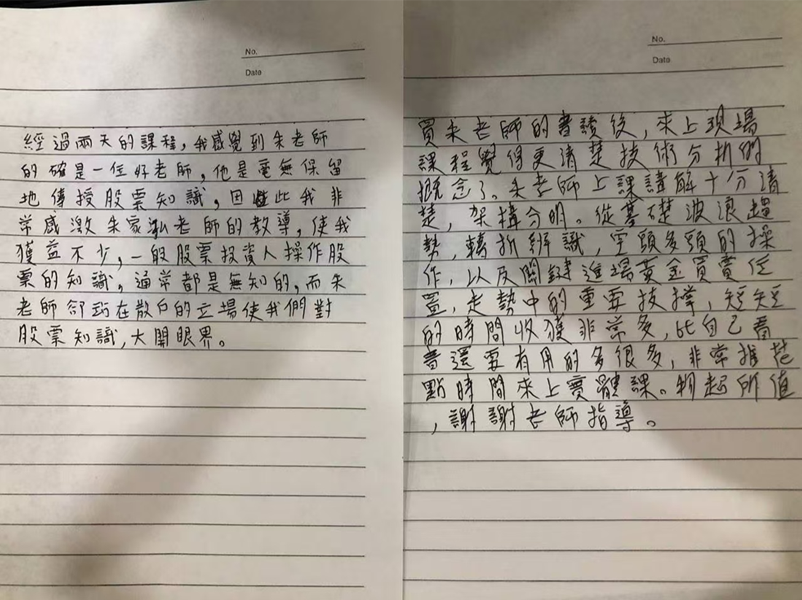 No.
Date
經過兩天的課程，我感覺到朱老師
的確是一位好老師，他是毫無保留
地傳授股票知識，因此我非
常感激朱家泓老師的教導，使我
獲益不少，一般股票投資人操作股
票的知識，通常都是無知的，而朱
老師卻站在散戶的立場使我們對
股票知識，大開眼界。
No.
Date
買朱老師的書讀後，來上現場
課程覺得更清楚技術分析的
概念了。朱老師上課講解十分清
楚，架構分明。從基礎波浪趨
勢，轉折辨識，空頭多頭的操
作，以及關鍵進場黃金買賣位
置，走勢中的重要支撐，短短
的時間收獲非常多，比自己看
書還要有用的多很多，非常推花
點時間來上實體課。物超所值
，謝謝老師指導。